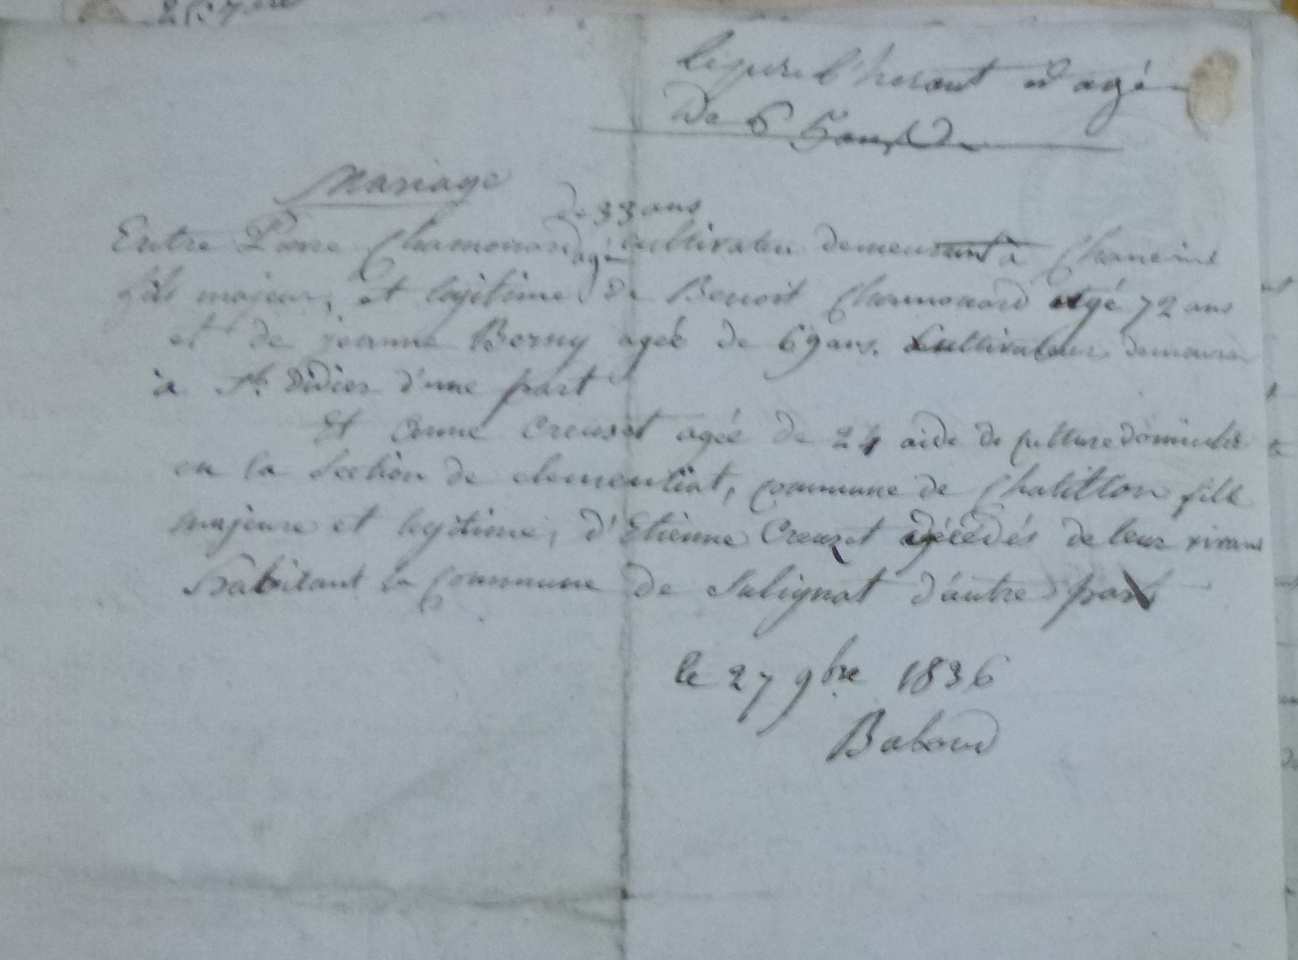 le père l'heront est agé
de 65 ans
Mariage
de 33 ans
Entre Pierre Chamonard agé cultivateur demeurant à Chaneins
fils majeur, et legitime de Benoit Chamonard agé 72 ans
et de jeanne Berny agée de 69 ans. Cultivateurs demeuran
à St. Didier d'une part
Et anne Creuzet agée de 24 aide de culture domicilié
en la Section de clemenciat, commune de Chatillon fille
majeure et legitime, d'Etienne Creuzet décédés de leur vivant
habitant la commune de Sulignat d'autre part
le 27 9bre 1836
Baboud